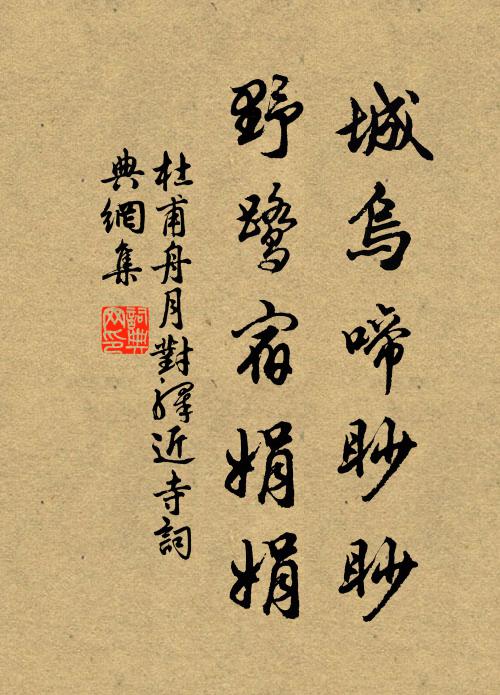 城烏啼眇眇
野鷺宿娟娟
杜甫舟月對驛近寺詞
典網集
詞典
网印